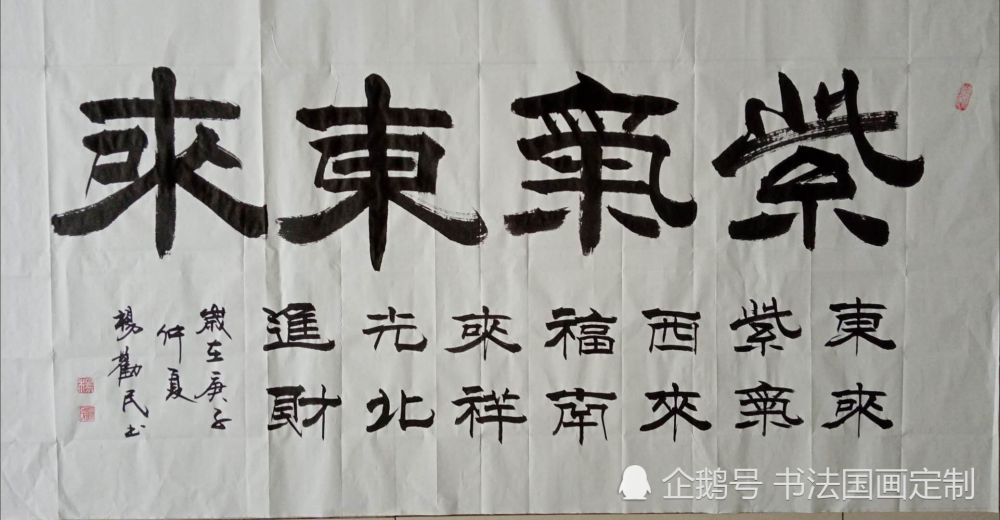 紫氣東來
東來
紫氣
西來
福南
來祥
光北
進財
歲在庚子
仲夏
楊勸民书
企鹅号 书法国画定制